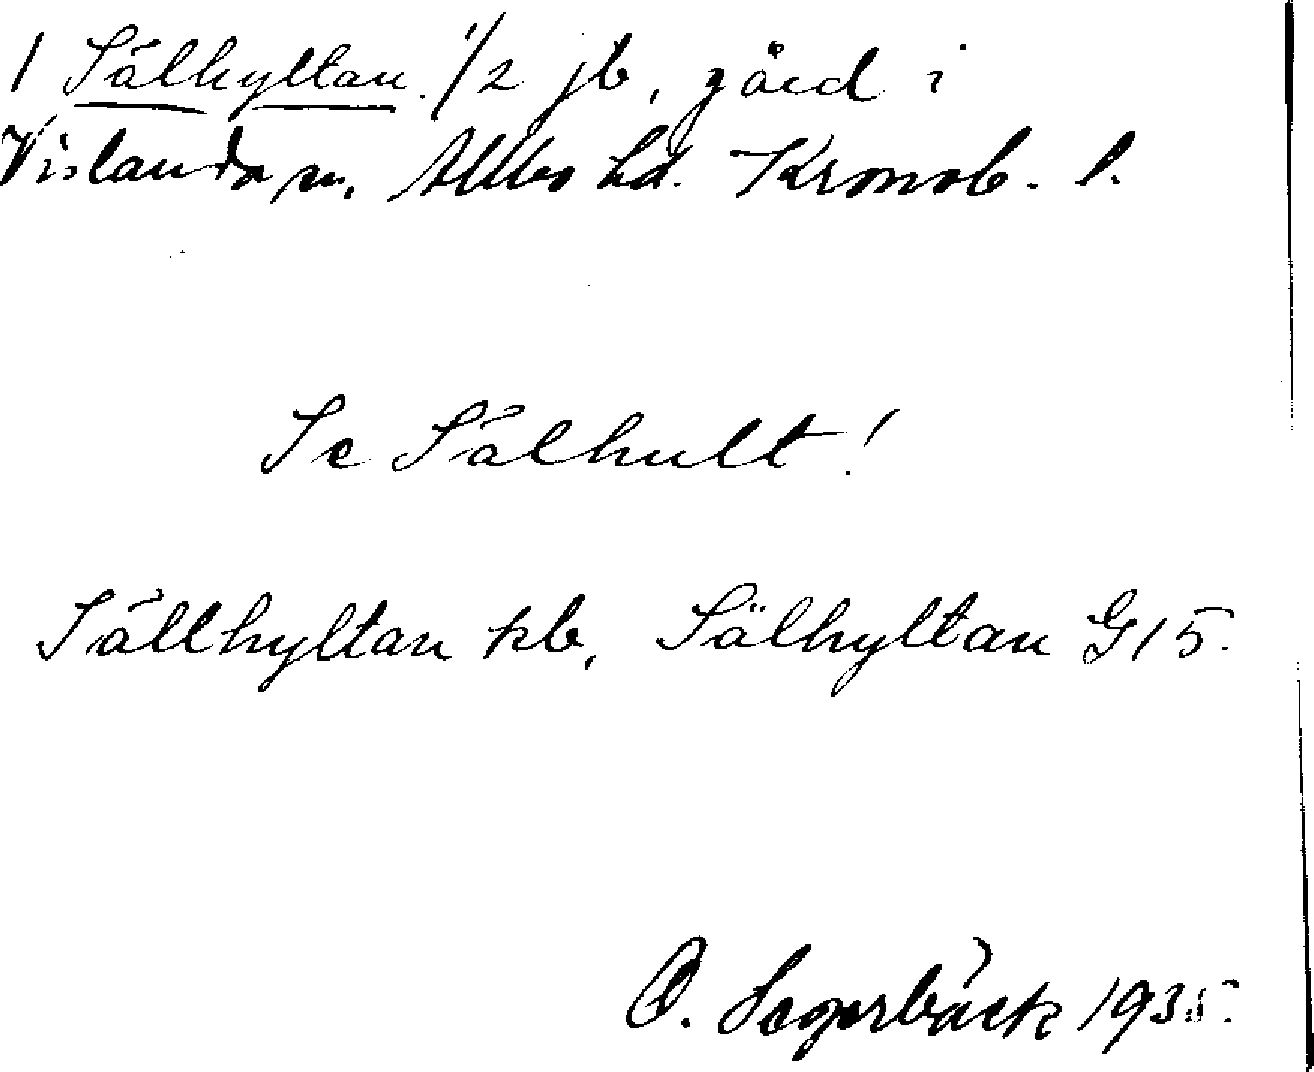 1 Sälhyltan 1/2 jb, gård i
Vislanda sn, Allbo hd. Kronob. l.
Se Sälhult!
Sällhyltan kb, Sälhyltan G15.
O. Sagerbäck 1935.